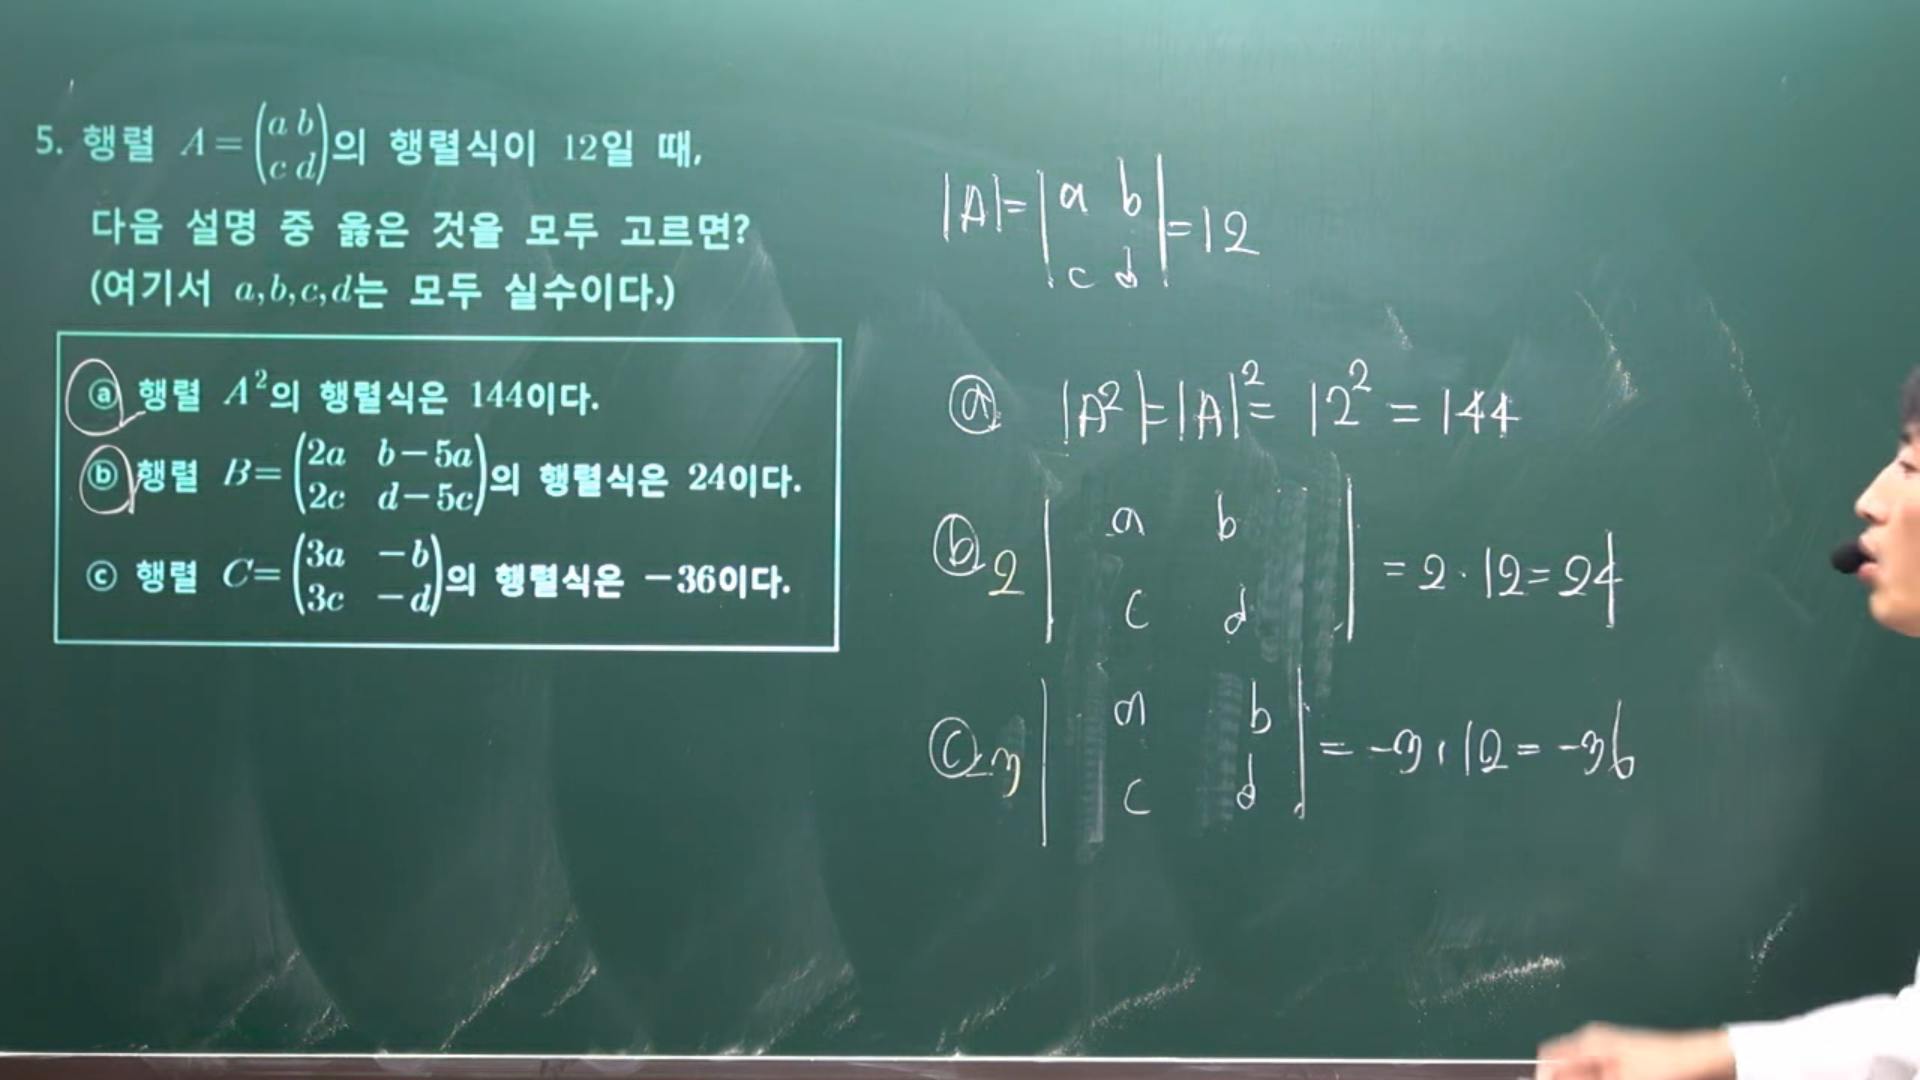 5. 행렬 A = (a b
c d)의 행렬식이 12일 때,
다음 설명 중 옳은 것을 모두 고르면?
(여기서 a, b, c, d는 모두 실수이다.)
ⓐ 행렬 A²의 행렬식은 144이다.
ⓑ 행렬 B = (2a b-5a
2c d-5c)의 행렬식은 24이다.
ⓒ 행렬 C = (3a -b
3c -d)의 행렬식은 -36이다.
|A| = |a b
c d| = 12
ⓐ |A²| = |A|² = 12² = 144
ⓑ 2 |a b
c d| = 2 · 12 = 24
ⓒ -3 |a b
c d| = -3 · 12 = -36